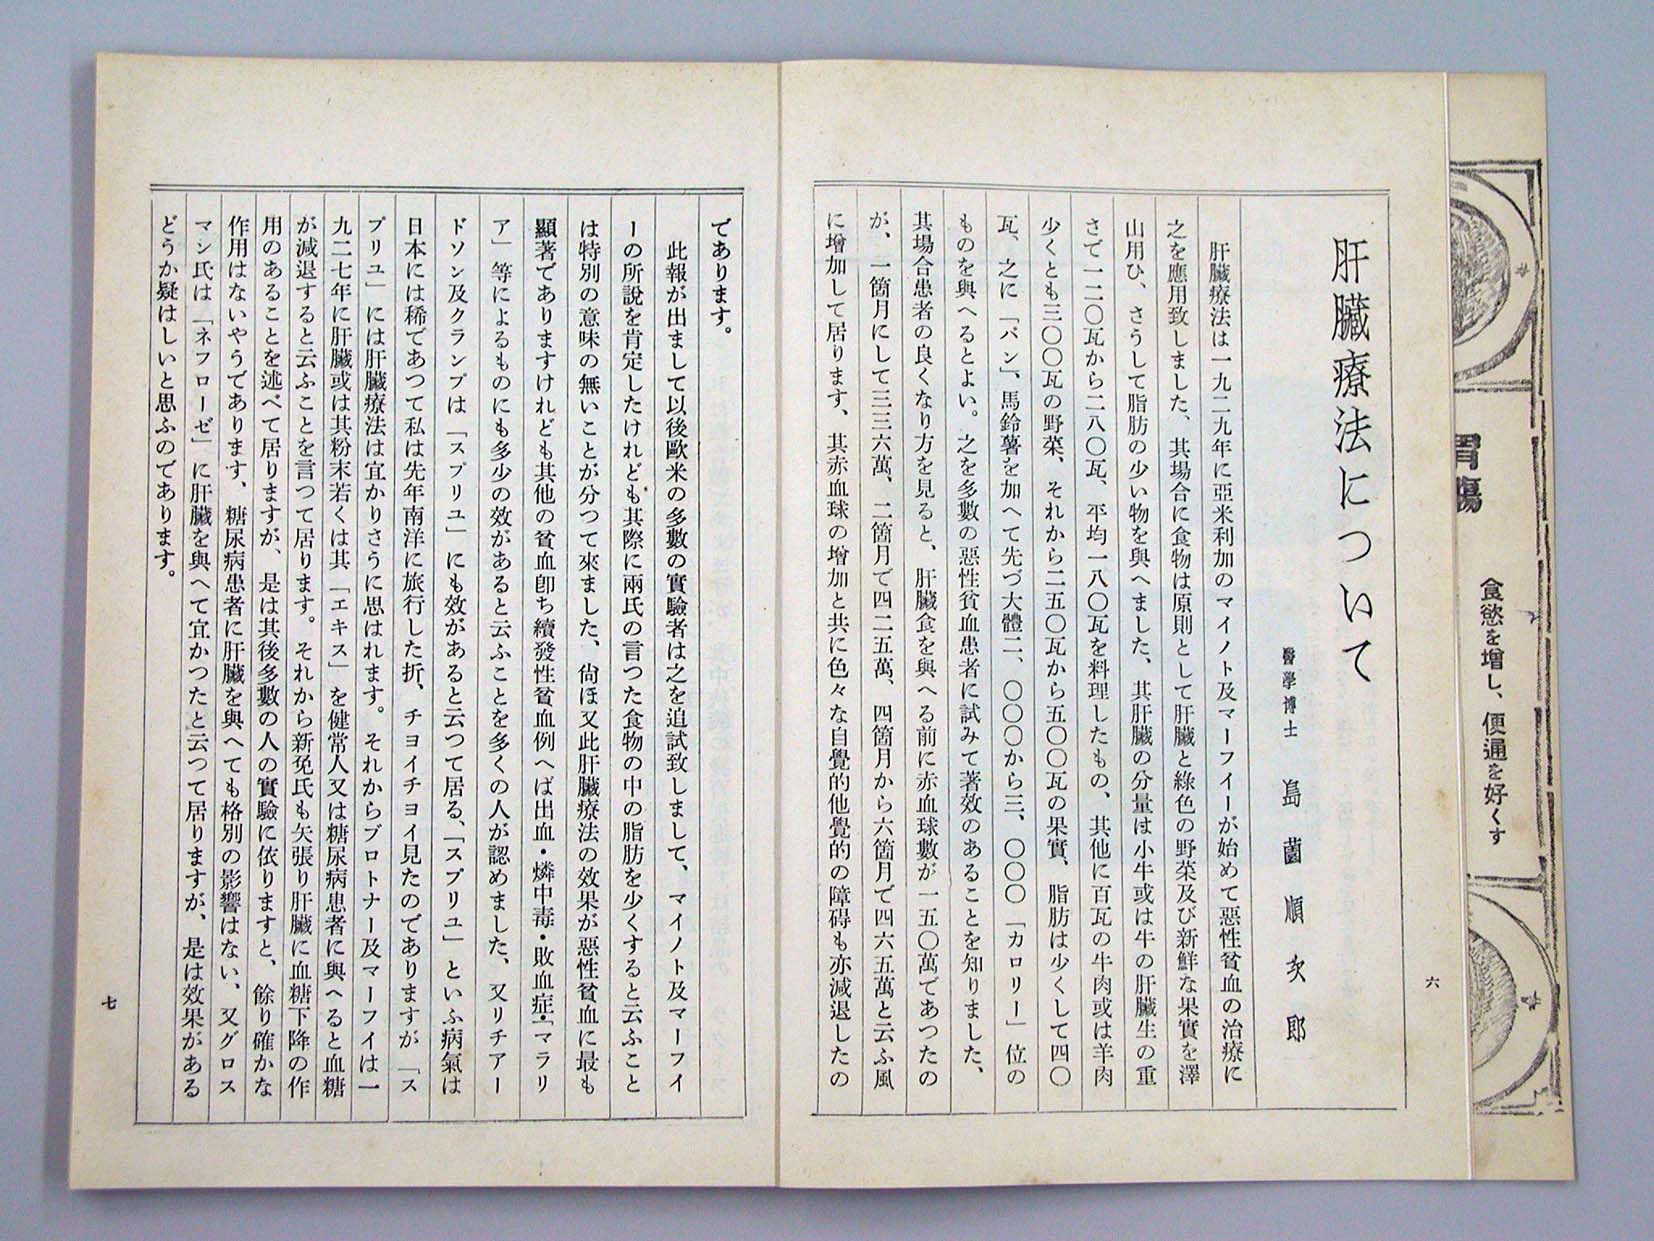 胃腸
食慾を增し、便通を好くす
六
肝臓療法について
醫學博士　島薗順次郎
肝臓療法は一九二九年に亞米利加のマイノト及マーフイーが始めて惡性貧血の治療に
之を應用致しました、其場合に食物は原則として肝臓と綠色の野菜及び新鮮な果實を澤
山用ひ、さうして脂肪の少い物を與へました、其肝臓の分量は小牛或は牛の肝臓生の重
さで一二〇瓦から二八〇瓦、平均一八〇瓦を料理したもの、其他に百瓦の牛肉或は羊肉
少くとも三〇〇瓦の野菜、それから二五〇瓦から五〇〇瓦の果實、脂肪は少くして四〇
瓦、之に「パン」、馬鈴薯を加へて先づ大體二、〇〇〇から三、〇〇〇「カロリー」位の
ものを與へるとよい。之を多數の惡性貧血患者に試みて著效のあることを知りました、
其場合患者の良くなり方を見ると、肝臓食を與へる前に赤血球數が一五〇萬であつたの
が、一箇月にして三三六萬、二箇月で四二五萬、四箇月から六箇月で四六五萬と云ふ風
に增加して居ります、其赤血球の增加と共に色々な自覺的他覺的の障碍も亦減退したの
であります。
此報が出まして以後歐米の多數の實驗者は之を追試致しまして、マイノト及マーフイ
ーの所說を肯定したけれども其際に兩氏の言つた食物の中の脂肪を少くすると云ふこと
は特別の意味の無いことが分つて來ました、尙ほ又此肝臓療法の效果が惡性貧血に最も
顯著でありますけれども其他の貧血卽ち續發性貧血例へば出血・燐中毒・敗血症・「マラリ
ア」等によるものにも多少の效があると云ふことを多くの人が認めました、又リチアー
ドソン及クランプは「スプリユ」にも效があると云つて居る、「スプリユ」といふ病氣は
日本には稀であつて私は先年南洋に旅行した折、チヨイチヨイ見たのでありますが「ス
プリユ」には肝臓療法は宜かりさうに思はれます。それからブロトナー及マーフイは一
九二七年に肝臓或は其粉末若くは其「エキス」を健常人又は糖尿病患者に與へると血糖
が減退すると云ふことを言つて居ります。それから新免氏も矢張り肝臓に血糖下降の作
用のあることを述べて居りますが、是は其後多數の人の實驗に依りますと、餘り確かな
作用はないやうであります、糖尿病患者に肝臓を與へても格別の影響はない、又グロス
マン氏は「ネフローゼ」に肝臓を與へて宜かつたと云つて居りますが、是は效果がある
どうか疑はしいと思ふのであります。
七